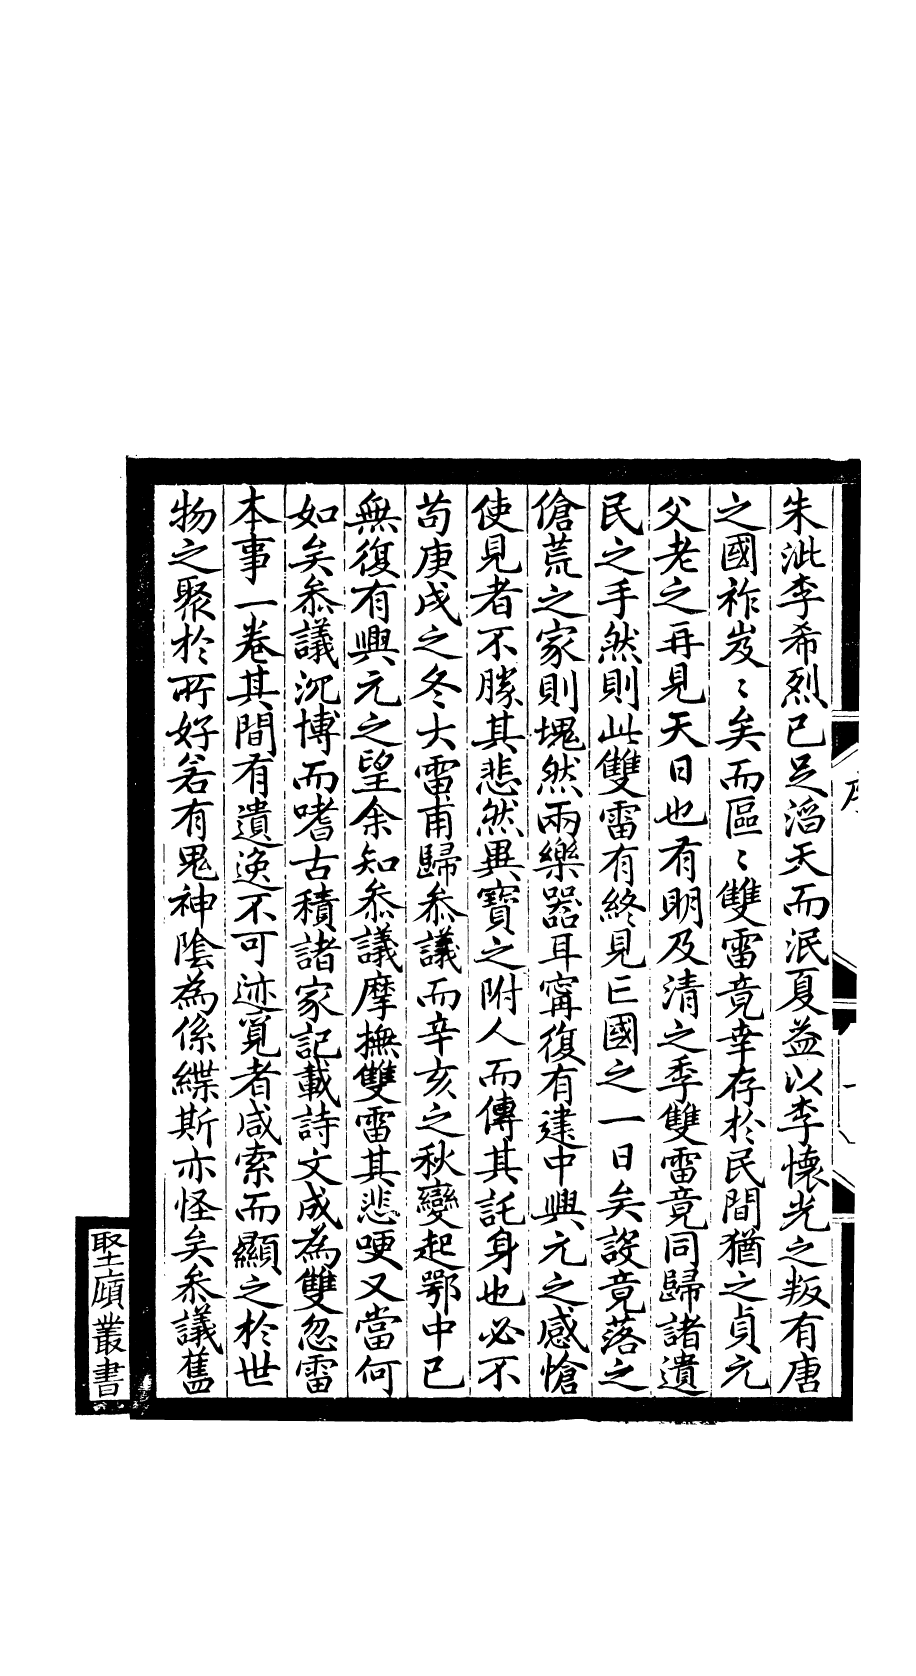 朱泚李希烈已足滔天而泯夏益以李懷光之叛有唐
之國祚岌〻矣而區〻雙雷竟幸存於民間猶之貞元
父老之再見天日也有明及清之季雙雷竟同歸諸遺
民之手然則此雙雷有終見亡國之一日矣設竟落之
傖荒之家則塊然兩樂器耳甯復有建中興元之感愴
使見者不勝其悲然異寶之附人而傳其託身也必不
苟庚戌之冬大雷甫歸叅議而辛亥之秋變起鄂中已
無復有興元之望余知叅議摩撫雙雷其悲哽又當何
如矣叅議沉博而嗜古積諸家記載詩文成為雙忽雷
本事一卷其間有遺逸不可迹覓者咸索而顯之於世
物之聚於所好若有鬼神陰為係緤斯亦怪矣叅議舊
序
一
堅廎叢書